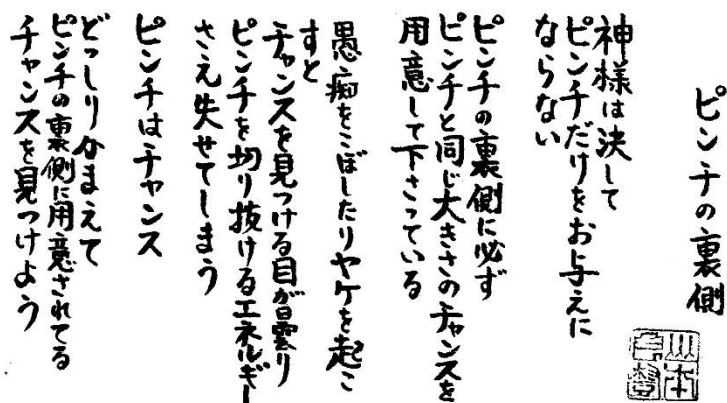 ピンチの裏側
神様は決して
ピンチだけをお与えに
ならない
ピンチの裏側に必ず
ピンチと同じ大きさのチャンスを
用意して下さっている
愚痴をこぼしたりヤケを起こ
すと
チャンスを見つける目が曇り
ピンチを切り抜けるエネルギー
さえ失せてしまう
ピンチはチャンス
どっしりかまえて
ピンチの裏側に用意されてる
チャンスを見つけよう